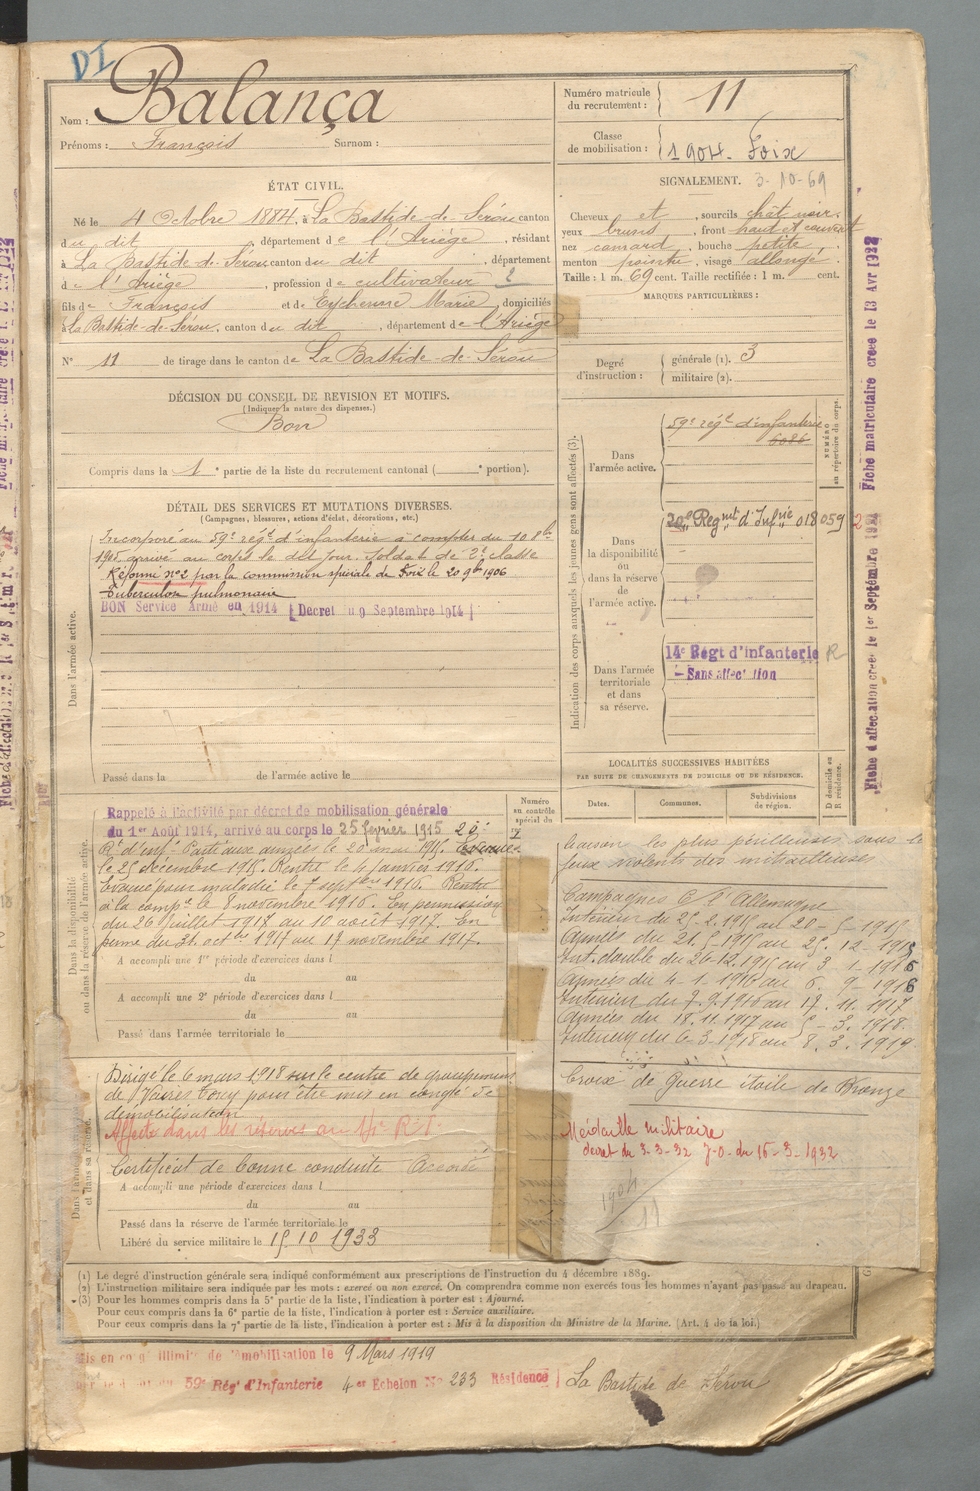 DI
Nom : Balança
Prénoms : François Surnom :
Numéro matricule du recrutement : 11
Classe de mobilisation : 1904. Foix
ÉTAT CIVIL.
Né le 4 Octobre 1884, à La Bastide-de-Sérou canton
du dit, département de l'Ariège, résidant
à La Bastide-de-Sérou canton du dit, département
de l'Ariège, profession de cultivateur 2
fils de François et de Eychenne Marie, domiciliés
à La Bastide-de-Sérou. canton du dit, département de l'Ariège
N° 11 de tirage dans le canton de La Bastide-de-Sérou
SIGNALEMENT. 3-10-69
Cheveux et, sourcils chât noir.
yeux bruns, front haut et couvert
nez camard, bouche petite,
menton pointu, visage allongé.
Taille : 1 m. 69 cent. Taille rectifiée : 1 m. cent.
MARQUES PARTICULIÈRES :
Degré d'instruction : générale (1). 3
militaire (2).
DÉCISION DU CONSEIL DE REVISION ET MOTIFS.
(Indiquer la nature des dispenses.)
Bon
Compris dans la 1e partie de la liste du recrutement cantonal ( e portion).
DÉTAIL DES SERVICES ET MUTATIONS DIVERSES.
(Campagnes, blessures, actions d'éclat, décorations, etc.)
Dans l'armée active.
Incorporé au 59e régt d'infanterie à compter du 10 8bre
1905, arrivé au corps le dit jour. Soldat de 2e classe
Réformé n°2 par la commission spéciale de Foix le 20 9bre 1906
Tuberculose pulmonaire
BON Service Armé en 1914 [Decret du 9 Septembre 1914]
Passé dans la de l'armée active le
Indication des corps auxquels les jeunes gens sont affectés (3).
NUMÉRO au répertoire du corps.
Dans l'armée active.
59e régt d'infanterie
6086
Dans la disponibilité ou dans la réserve de l'armée active.
20e Regmt d'Infrie 018059
Dans l'armée territoriale et dans sa réserve.
14e Régt d'infanterie R
- Sans affectation
LOCALITÉS SUCCESSIVES HABITÉES
PAR SUITE DE CHANGEMENTS DE DOMICILE OU DE RÉSIDENCE.
Dates. Communes. Subdivisions de région. D domicile ou R résidence.
Numéro au contrôle spécial du
Dans la disponibilité ou dans la réserve de l'armée active.
Rappelé à l'activité par décret de mobilisation générale
du 1er Août 1914, arrivé au corps le 25 fevrier 1915 20e
Rt d'inf. Parti aux armées le 20 mai 1915.
le 25 décembre 1915. Rentré le 4 janvier 1916.
Évacué pour maladie le 7 septbre 1916. Rentré
à la compie le 8 novembre 1916. En permission
du 26 juillet 1917 au 10 août 1917. En
perme du 31 octbre 1917 au 17 novembre 1917.
A accompli une 1re période d'exercices dans l
du au
A accompli une 2e période d'exercices dans l
du au
Passé dans l'armée territoriale le
liaison les plus périlleuses sous le
feux violents des mitrailleuses
Campagnes C. l'Allemagne
Intérieur du 25-2-1915 au 20-5-1915
Armées du 21-5-1915 au 25-12-1915
Int. double du 26-12-1915 au 3-1-1916
Armées du 4-1-1916 au 6-9-1916
Intérieur du 7-9-1916 au 17-11-1917
Armées du 18.11.1917 au 5-3-1918
Intérieur du 6-3-1918 au 8.3.1919
Croix de Guerre étoile de Bronze
Médaille militaire
decret du 3-3-32 J.O. du 16-3-1932
1904
11
Dirigé le 6 mars 1918 sur le centre de groupement
de Vaires Torcy pour être mis en congé de
démobilisation
Affecté dans les réserves au
Certificat de bonne conduite Accordé
A accompli une période d'exercices dans l
du au
Passé dans la réserve de l'armée territoriale le
Libéré du service militaire le 15 10 1933
(1) Le degré d'instruction générale sera indiqué conformément aux prescriptions de l'instruction du 4 décembre 1889.
(2) L'instruction militaire sera indiquée par les mots : exercé ou non exercé. On comprendra comme non exercés tous les hommes n'ayant pas passé au drapeau.
(3) Pour les hommes compris dans la 5e partie de la liste, l'indication à porter est : Ajourné.
Pour ceux compris dans la 6e partie de la liste, l'indication à porter est : Service auxiliaire.
Pour ceux compris dans la 7e partie de la liste, l'indication à porter est : Mis à la disposition du Ministre de la Marine. (Art. 4 de la loi.)
Mis en congé illimité de démobilisation le 9 Mars 1919
59e Régt d'Infanterie 4e Echelon N° 233 Résidence La Bastide de Sérou
Fiche d'affectation créée le 1er Septembre 1921 Fiche matriculaire créée le 13 Avr 1922